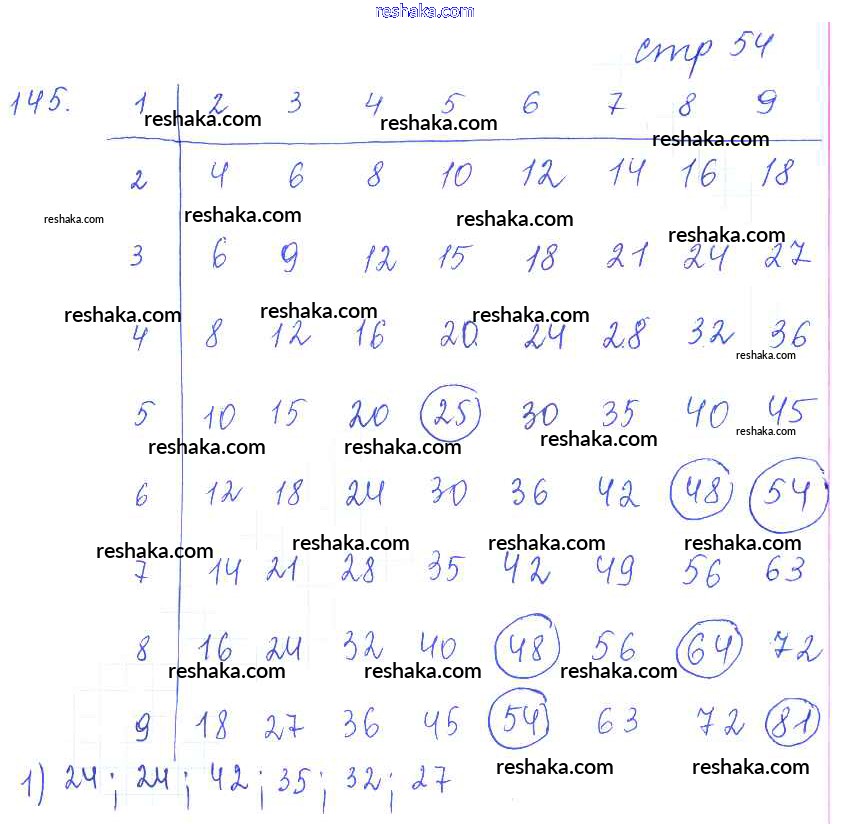 reshaka.com
стр 54
145. 1 2 3 4 5 6 7 8 9
reshaka.com reshaka.com reshaka.com
2 4 6 8 10 12 14 16 18
reshaka.com reshaka.com reshaka.com reshaka.com
3 6 9 12 15 18 21 24 27
reshaka.com reshaka.com reshaka.com
4 8 12 16 20 24 28 32 36
reshaka.com
5 10 15 20 25 30 35 40 45
reshaka.com reshaka.com reshaka.com reshaka.com
6 12 18 24 30 36 42 48 54
reshaka.com reshaka.com reshaka.com reshaka.com
7 14 21 28 35 42 49 56 63
8 16 24 32 40 48 56 64 72
reshaka.com reshaka.com reshaka.com
9 18 27 36 45 54 63 72 81
reshaka.com reshaka.com
1) 24; 24; 42; 35; 32; 27